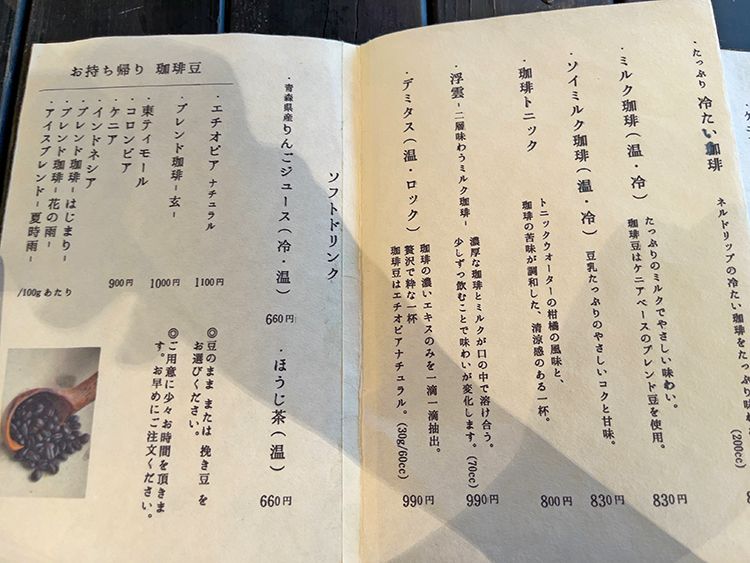 ・たっぷり 冷たい珈琲
ネルドリップの冷たい珈琲を
(200cc)
・ミルク珈琲（温・冷）
たっぷりのミルクでやさしい味わい。
珈琲豆はケニアベースのブレンド豆を使用。
830円
・ソイミルク珈琲（温・冷）
豆乳たっぷりのやさしいコクと甘味。
830円
・珈琲トニック
トニックウォーターの柑橘の風味と、
珈琲の苦味が調和した、清涼感のある一杯。
800円
・浮雲-二層味わうミルク珈琲-
濃厚な珈琲とミルクが口の中で溶け合う。
少しずつ飲むことで味わいが変化します。(70cc)
990円
・デミタス（温・ロック）
珈琲の濃いエキスのみを一滴一滴抽出。
贅沢で粋な一杯
珈琲豆はエチオピアナチュラル。(30g/60cc)
990円
ソフトドリンク
・青森県産りんごジュース（冷・温）
660円
・ほうじ茶（温）
660円
お持ち帰り 珈琲豆
・エチオピア ナチュラル
1100円
・ブレンド珈琲-玄-
1000円
・東ティモール
・コロンビア
・ケニア
900円
・インドネシア
・ブレンド珈琲-はじまり-
・ブレンド珈琲-花の雨-
・アイスブレンド-夏時雨-
/100gあたり
◎豆のまま または 挽き豆 を
お選びください。
◎ご用意に少々お時間を頂きま
す。お早めにご注文ください。